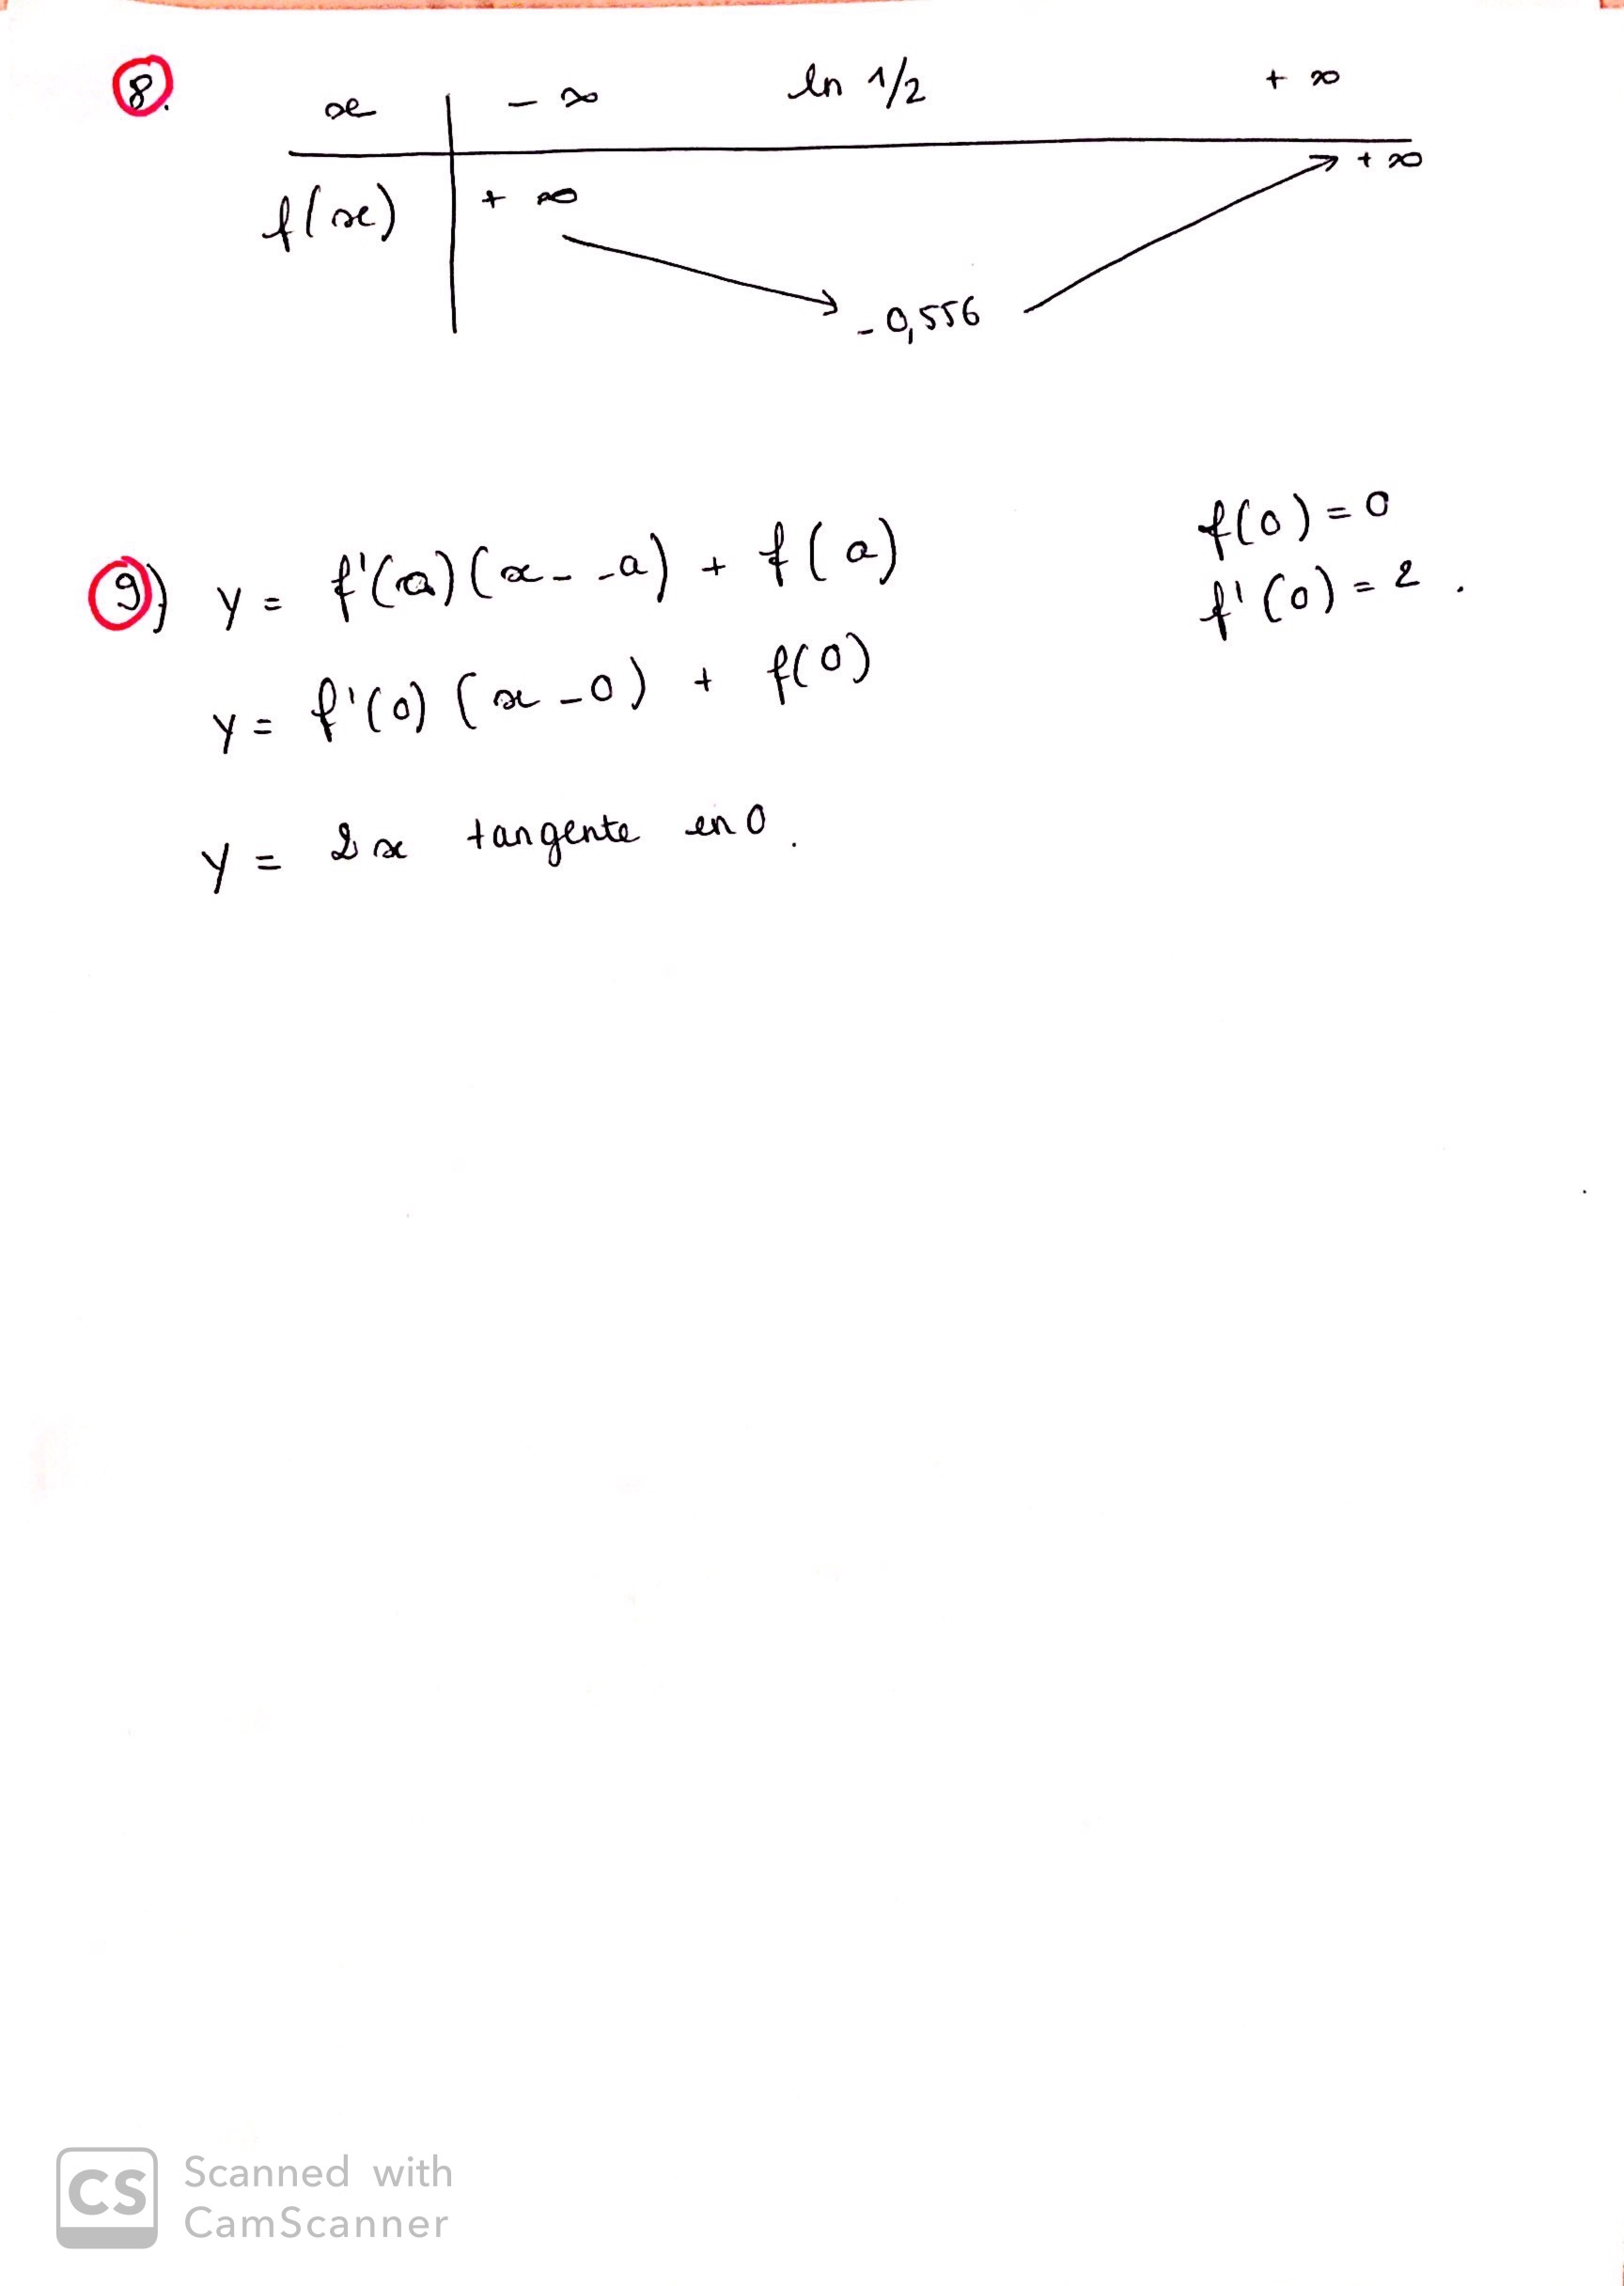 8.
x | - ∞ ln 1/2 + ∞
f(x) | + ∞ - 0,556 + ∞
9) y = f'(a)(x - -a) + f(a) f(0) = 0
y = f'(0)(x - 0) + f(0) f'(0) = 2.
y = 2x tangente en 0.
CS Scanned with
CamScanner